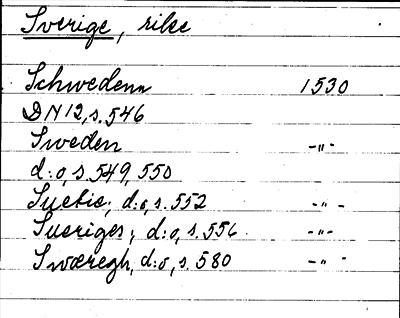 Sverige, rike
Schwedenn 1530
DN 12, s. 546
Sweden -"-
d:o, s. 549, 550
Suetie, d:o, s. 552 -"-
Sueriges, d:o, s. 556 -"-
Swæregh, d:o, s. 580 -"-